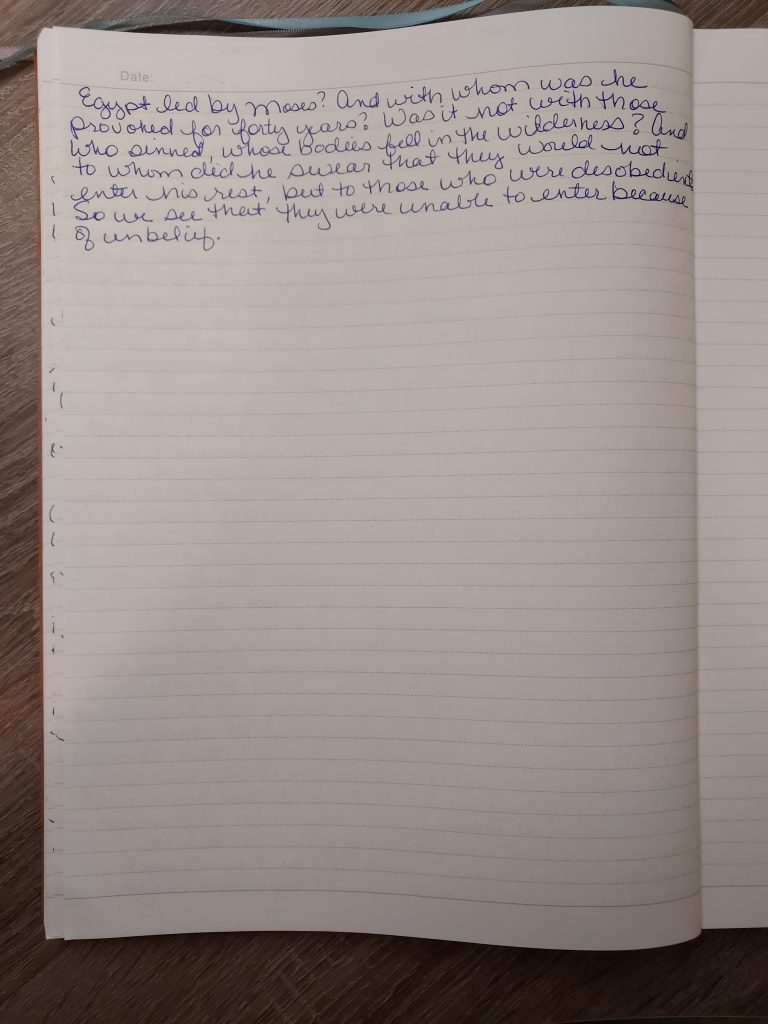 Date:
Egypt led by Moses? And with whom was he
provoked for forty years? Was it not with those
who sinned, whose bodies fell in the wilderness? And
to whom did he swear that they would not
enter his rest, but to those who were desobedient
So we see that they were unable to enter because
of unbelief.